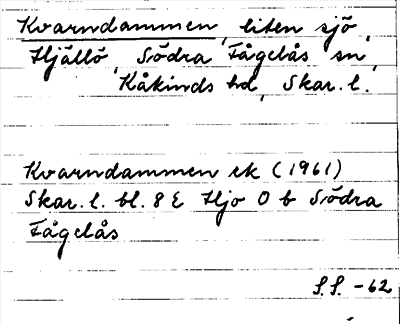 Kvarndammen, liten sjö,
Hjällö, Södra Fågelås sn,
Kåkinds hd, Skar. l.
Kvarndammen ek (1961)
Skar. l. bl. 8 E Hjo 0 b Södra
Fågelås
S.S. -62